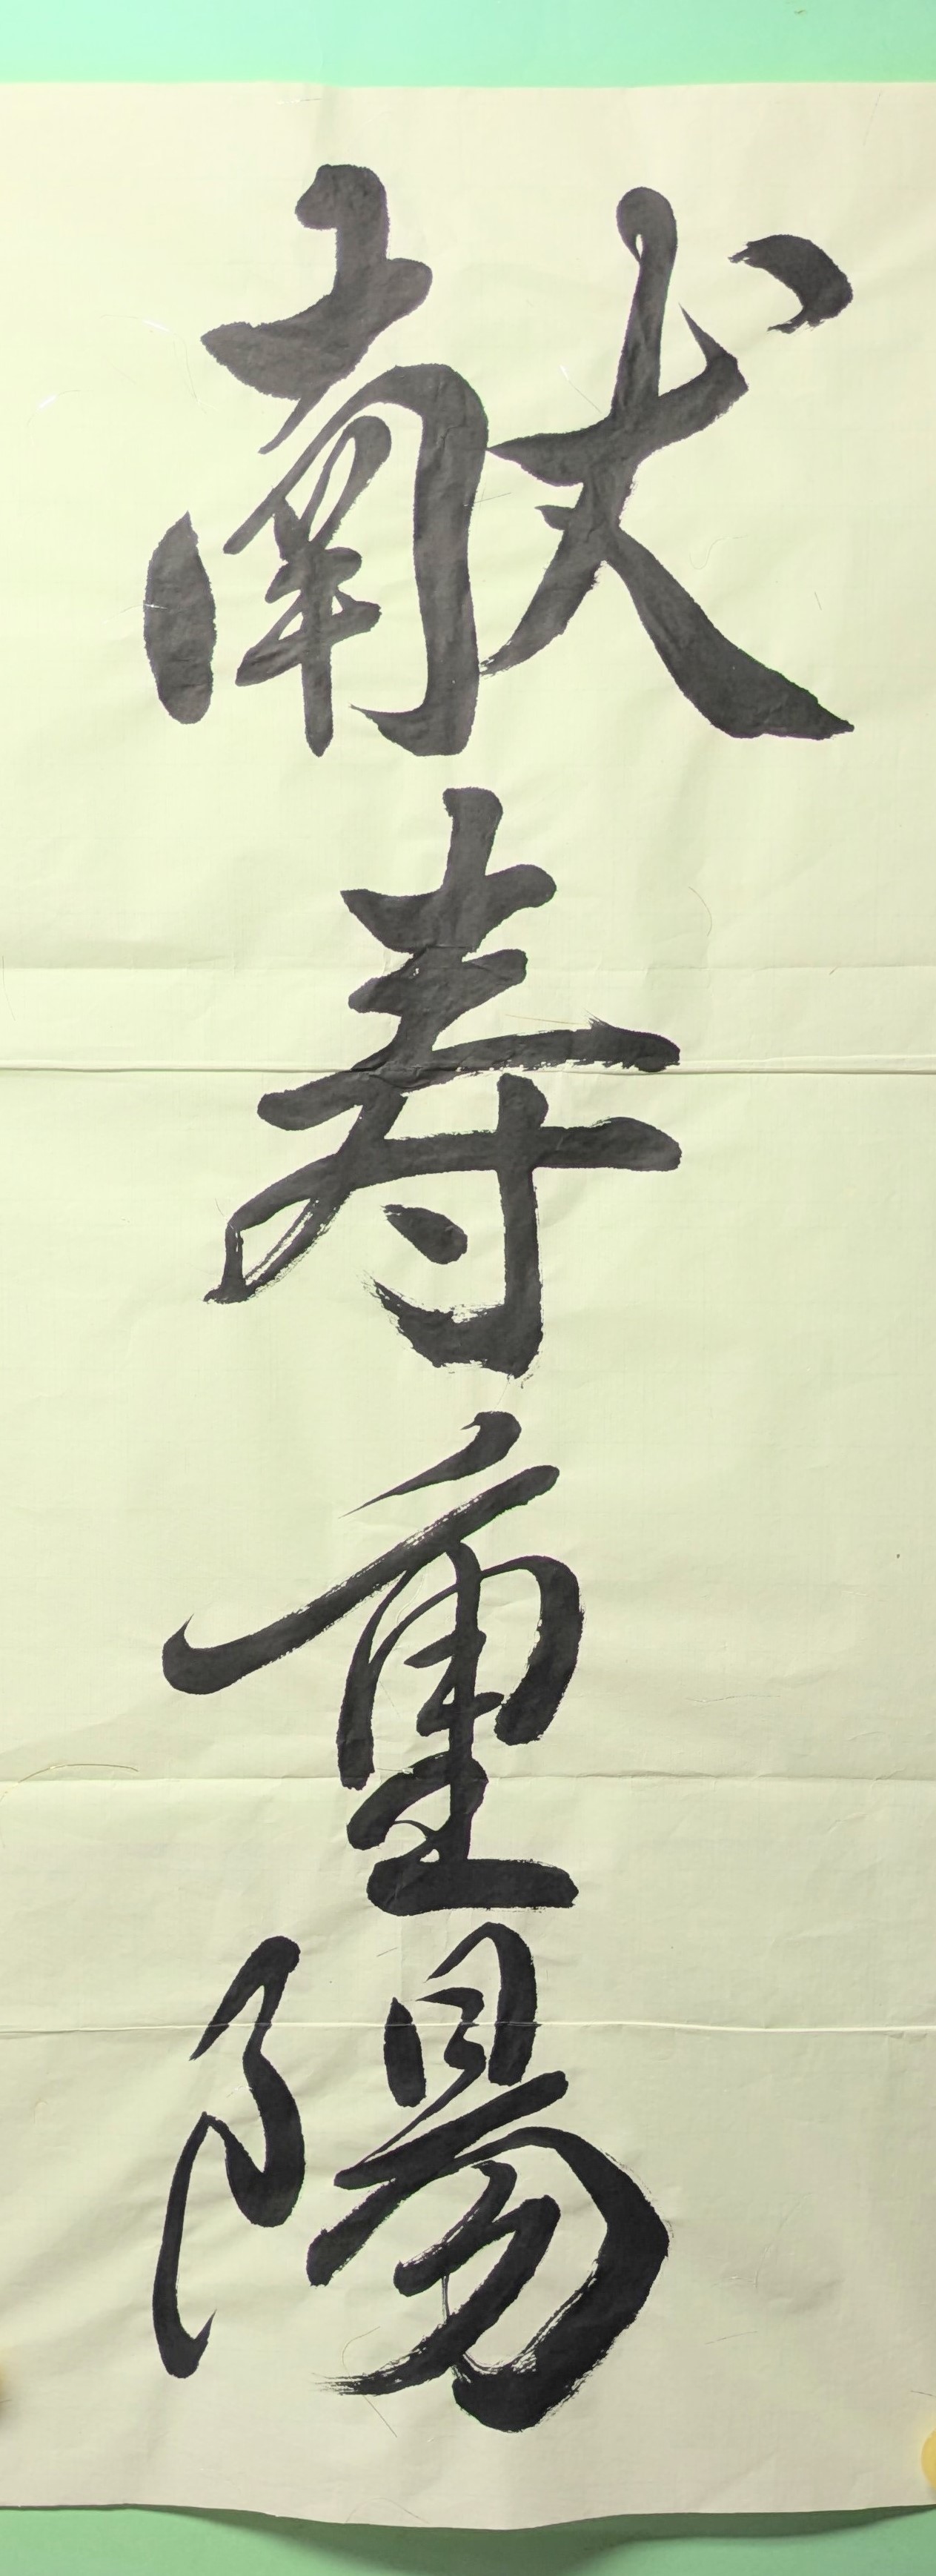 献寿重陽